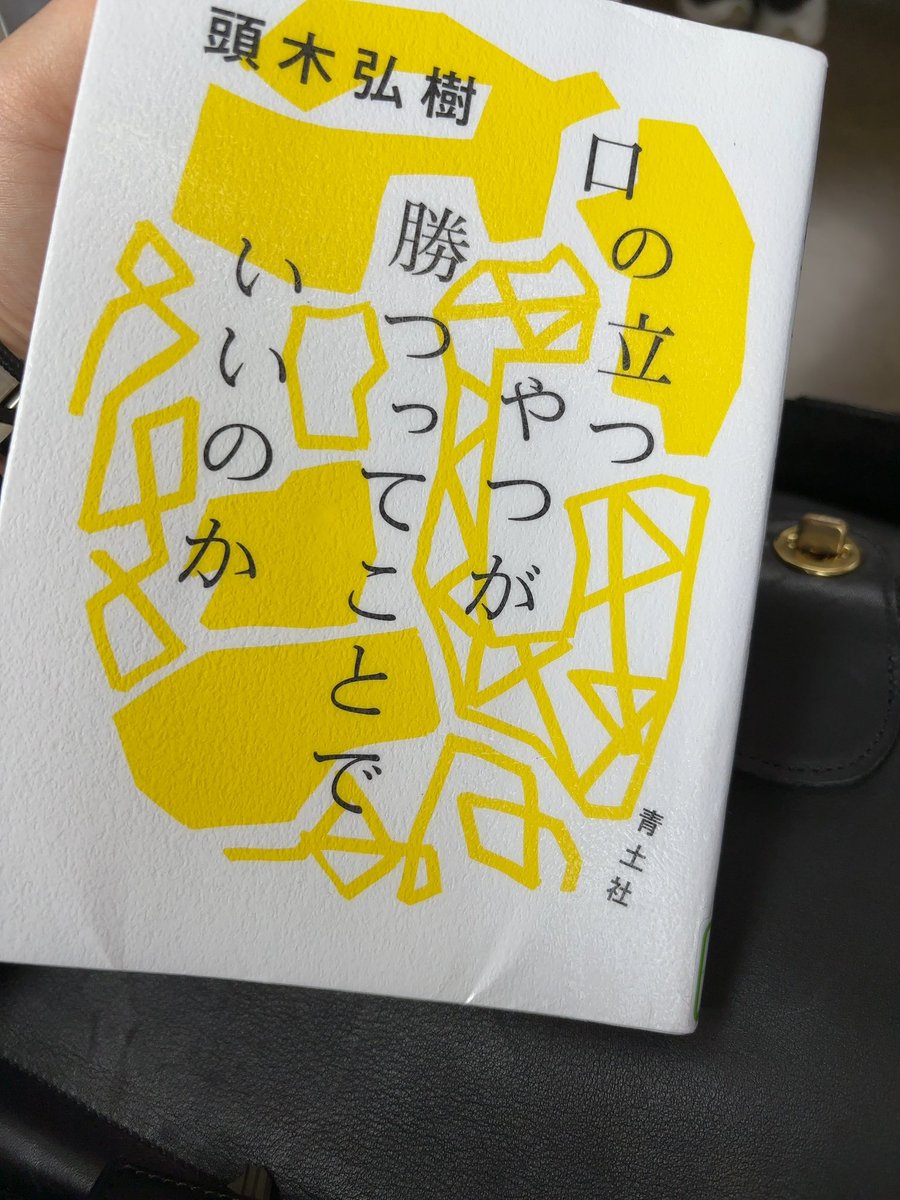 頭木弘樹
口の立つ
やつが
勝つってことで
いいのか
青土社